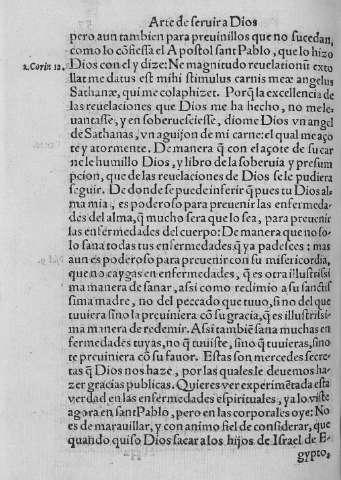 Arte de seruir a Dios
pero aun tambien para preuinillos que no sucedan,
como lo cõfiessa el Apostol sant Pablo, que lo hizo
2. Corin 12. Dios con el y dize: Ne magnitudo reuelationũ extollat me datus est mihi stimulus carnis meæ angelus
Sathanæ, qui me colaphizet. Porq̃ la excellencia de
las reuelaciones que Dios me ha hecho, no me leuantasse, y en soberuesciesse, diome Dios vn angel
de Sathanas, vn aguijon de mi carne: el qual me açote y atormente. De manera q̃ con el açote de su carne le humillo Dios, y libro de la soberuia y presumpcion, que de las reuelaciones de Dios se le pudiera
seguir. De donde se puede inferir q̃ pues tu Dios alma mia, es poderoso para preuenir las enfermedades del alma, q̃ mucho sera que lo sea, para preuenir
las enfermedades del cuerpo: De manera que no solo sana todas tus enfermedades q̃ ya padesces: mas
aun es poderoso para preuenir con su misericordia,
que no caygas en enfermedades, q̃ es otra illustrissima manera de sanar, assi como redimio a su sanctissima madre, no del peccado que tuuo, sino del que
tuuiera sino la preuiniera cõ su gracia, q̃ es illustrissima manera de redemir. Assi tambiẽ sana muchas enfermedades tuyas, no q̃ tuuiste, sino q̃ tuuieras, sino
te preuiniera cõ su fauor. Estas son mercedes secretas q̃ Dios nos haze, por las quales le deuemos hazer gracias publicas. Quieres ver experimẽtada esta
verdad en las enfermedades espirituales, ya lo viste
agora en sant Pablo, pero en las corporales oye: No
es de marauillar, y con animo fiel de considerar, que
quando quiso Dios sacar a los hijos de Israel de E-
gypto,